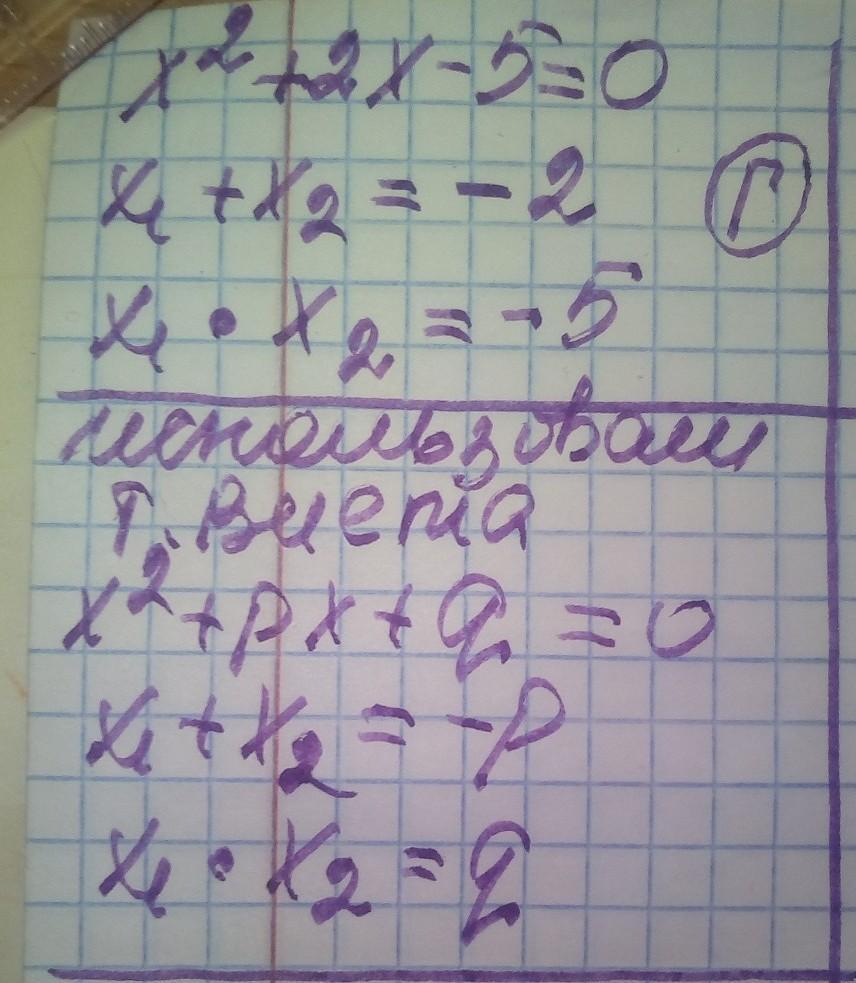 x² + 2x - 5 = 0
x₁ + x₂ = - 2
Г
x₁ · x₂ = - 5
использовали
т. Виета
x² + px + q = 0
x₁ + x₂ = -p
x₁ · x₂ = q